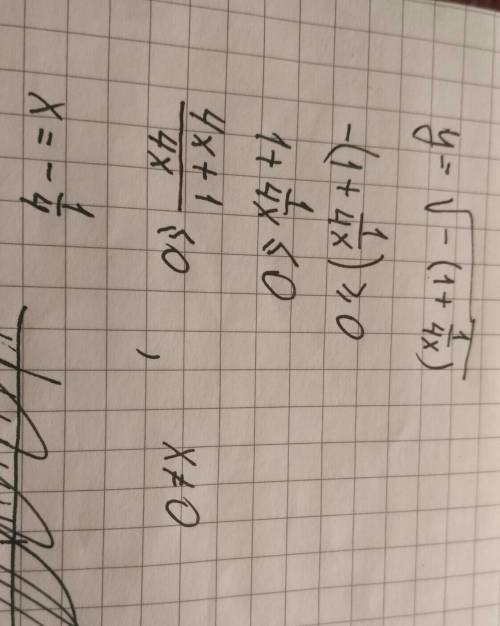 y = √-(1 + 1/4x)
-(1 + 1/4x) ⩾ 0
1 + 1/4x ⩽ 0
4x + 1/4x ⩽ 0 , x ≠ 0
x = - 1/4